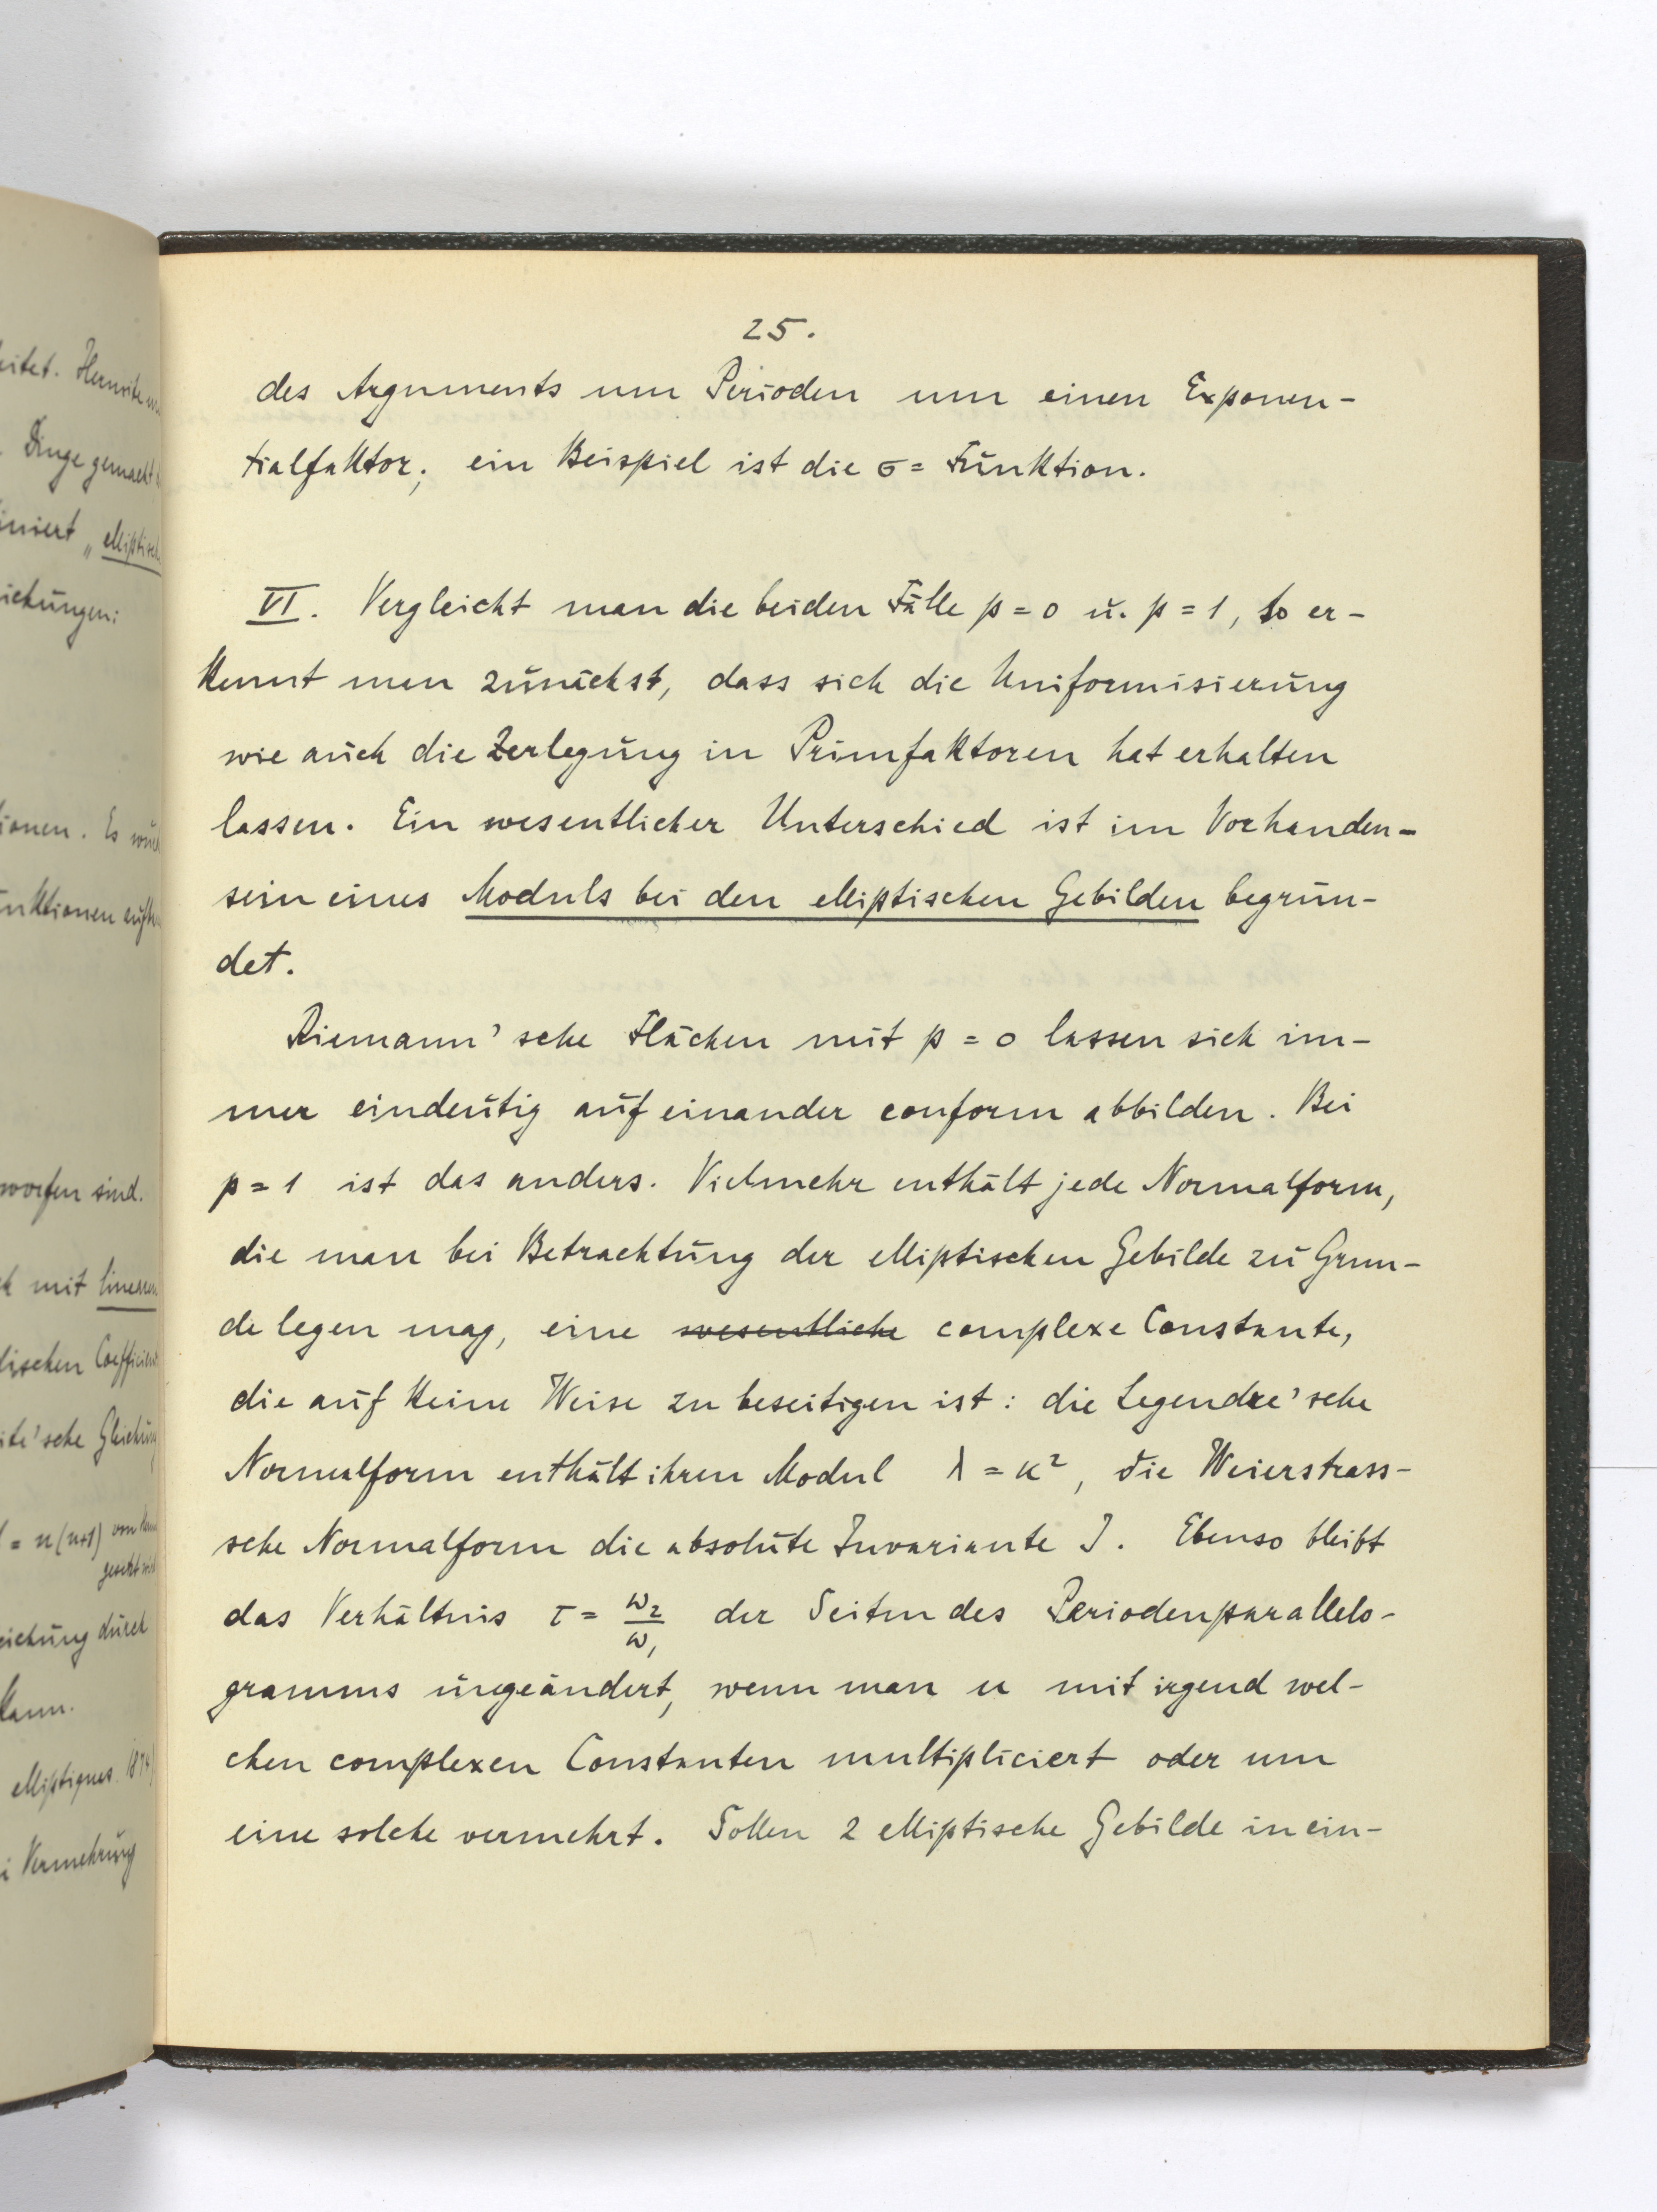 eitet. Hermite
Dinge gemacht
iniert „ elliptisch
iehungen:
ionen. Es
nktionen
worfen sind.
mit linearen
lischen Coefficien
ite'sche Gleichung
= n(n+1) von
gesetzt
eichung durch
kann.
elliptiques. 1874
i Vermehrung
25.
des Arguments um Perioden um einen Exponen-
tialfaktor; ein Beispiel ist die σ= Funktion.
VI. Vergleicht man die beiden Fälle p = 0 u. p = 1, so er-
kennt man zunächst, dass sich die Uniformisierung
wie auch die Zerlegung in Primfaktoren hat erhalten
lassen. Ein wesentlicher Unterschied ist im Vorhanden-
sein eines Moduls bei den elliptischen Gebilden begrün-
det.
Riemann'sche Flächen mit p = 0 lassen sich im-
mer eindeutig auf einander conform abbilden. Bei
p = 1 ist das anders. Vielmehr enthält jede Normalform,
die man bei Betrachtung der elliptischen Gebilde zu Grun-
de legen mag, eine wesentliche complexe Constante,
die auf keine Weise zu beseitigen ist: die Legendre'sche
Normalform enthält ihren Modul λ = κ², die Weierstrass-
sche Normalform die absolute Invariante J. Ebenso bleibt
das Verhältnis τ = ω₂/ω₁ der Seiten des Periodenparallelo-
gramms ungeändert, wenn man u mit irgend wel-
chen complexen Constanten multipliciert oder um
eine solche vermehrt. Sollen 2 elliptische Gebilde in ein-